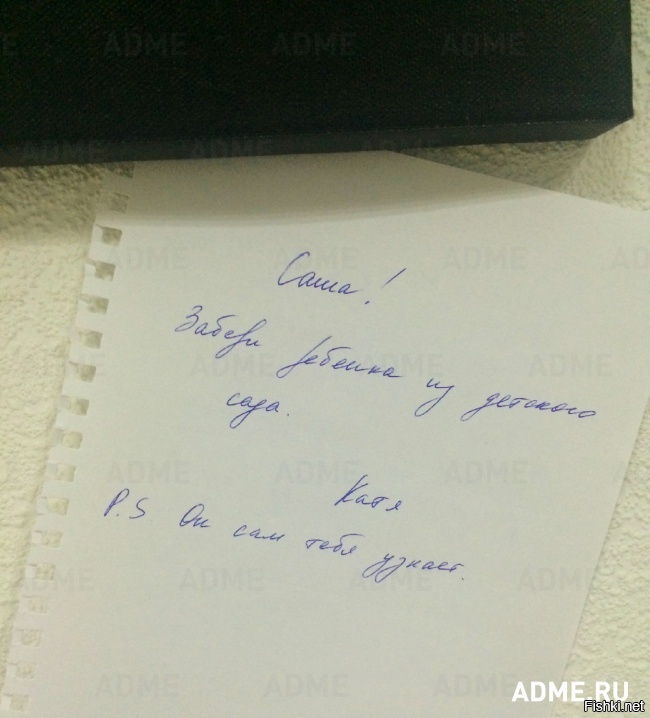 Саша!
Забери ребенка из детского
сада.
Катя
P.S Он сам тебя узнает.
ADME.RU
Fishki.net